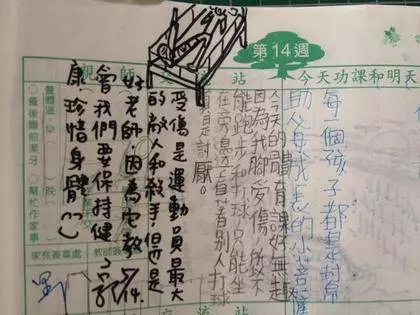 第14週
今天功課和明天
每一個孩子都是幫
助父母成長的小菩薩
站
今天的體育課好無趣
因為我腳受傷,所以不
能跑步和打球只能坐
在旁邊看著別人打球
真是討厭。
受傷是運動員最大
的敵人和殺手,但也是
好老師,因為它教
會我們要保持健
康珍惜身體
親師
量體溫:早
餐後潔牙
幫忙作家事
家長簽章處
教師簽章
流站